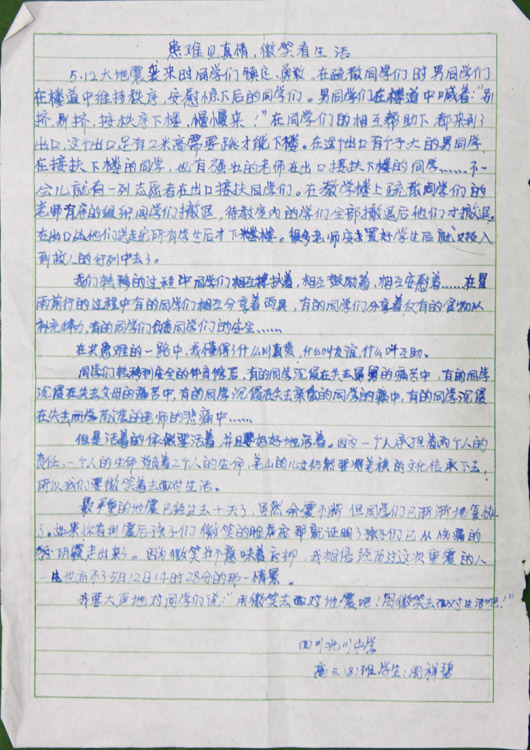 患难见真情,微笑看生活
5.12大地震袭来时同学们镇定、勇敢,在疏散同学们时男同学们
在楼道中维持秩序,安慰惊下后的同学们。男同学们在楼道中喊着:"别
挤,别挤,按秩序下楼,慢慢来!"在同学们的相互帮助下都来到了
出口,这个出口足有2米高需要跳才能下楼。在这个出口有个子大的男同学
在接扶下楼的同学,也有强壮的老师在出口搂扶下楼的同学……不一
会儿就有一列志愿者在出口搂扶同学们。在教学楼上疏散同学们的
老师有序的组织同学们撤退,待教室内的学们全部撤退后他们才撤退。
在出口他们送走完所有学生后才下楼。很多老师安置好学生后就又投入
到救人的行列中去了。
我们转移的过程中同学们相互搀扶着,相互鼓励着,相互安慰着……在冒
雨前行的过程中有的同学们相互分享着雨具,有的同学们分享着仅有的食物以
补充体力,有的同学们同学们的安全……
在共患难的一路中,我懂得了什么叫真爱,什么叫友谊,什么叫互助。
同学们转移到安全的体育馆后,有的同学沉侵在失去舅舅的痛苦中,有的同学
沉侵在失去父母的痛苦中,有的同学沉侵在失去亲爱的同学的痛中,有的同学沉侵
在失去的老师的悲痛中……
但是活着的依然要活着,并且要好好地活着。因为一个人承担着两个人的
责任,一个人的生命着2个人的生命,羌山的儿女仍然要将羌族的文化信承下去,
所以我们要微笑着去面对生活。
最严重的地震已经过去十天了,虽然余震不断但同学们已渐渐地复
了。如果你看到震后孩子们微笑的脸庞那就证明了孩子们已从伤痛的
阴霾走出来了。因为微笑并不意味着忘却,我相信经历过这次重震的人
一生也忘不了5月12日14时28分的那一情景。
我要大声地对同学们说:"用微笑去面对地震吧!用微笑去面对生活吧!"
四川北川中学
高三(8)班学生:周祥碧